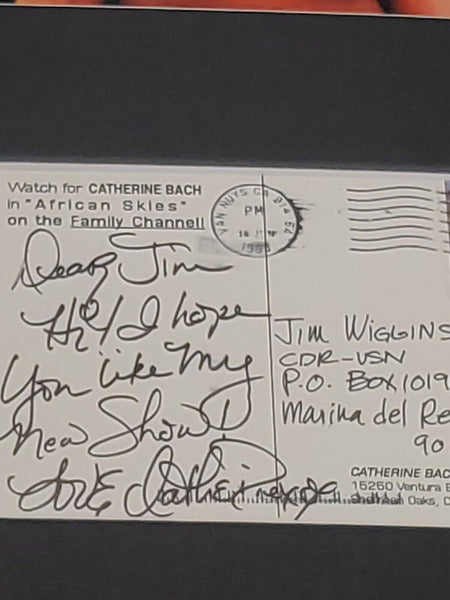 Watch for CATHERINE BACH
in "African Skies"
on the Family Channel!
VAN NUYS CA
PM
Dear Jim
Hi! I hope
You like my
New Show!
Love Catherine
JIM WIGGINS
CDR-USN
P.O. BOX 1019
Marina del Re
90
CATHERINE BAC
15250 Ventura B
Oaks, C